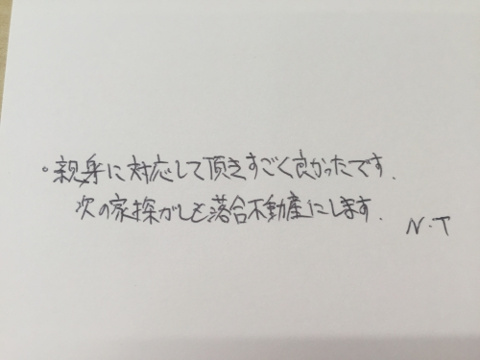 ・親身に対応して頂きすごく良かったです.
次の家探がしも落合不動産にします.
N.T